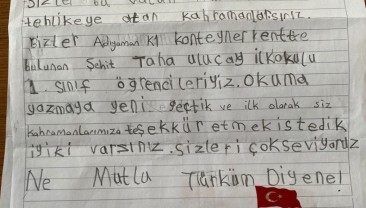 Sizler bu vatan
tehlikeye atan kahramanlarsınız.
Bizler Adıyaman K1 konteynerkentte
bulunan Şehit Taha Uluçay ilkokulu
1. sınıf öğrencileriyiz. Okuma
yazmaya yeni geçtik ve ilk olarak siz
kahramanlarımıza teşekkür etmek istedik
iyiki varsınız. Sizleri çok seviyoruz
Ne Mutlu Türküm Diyene!